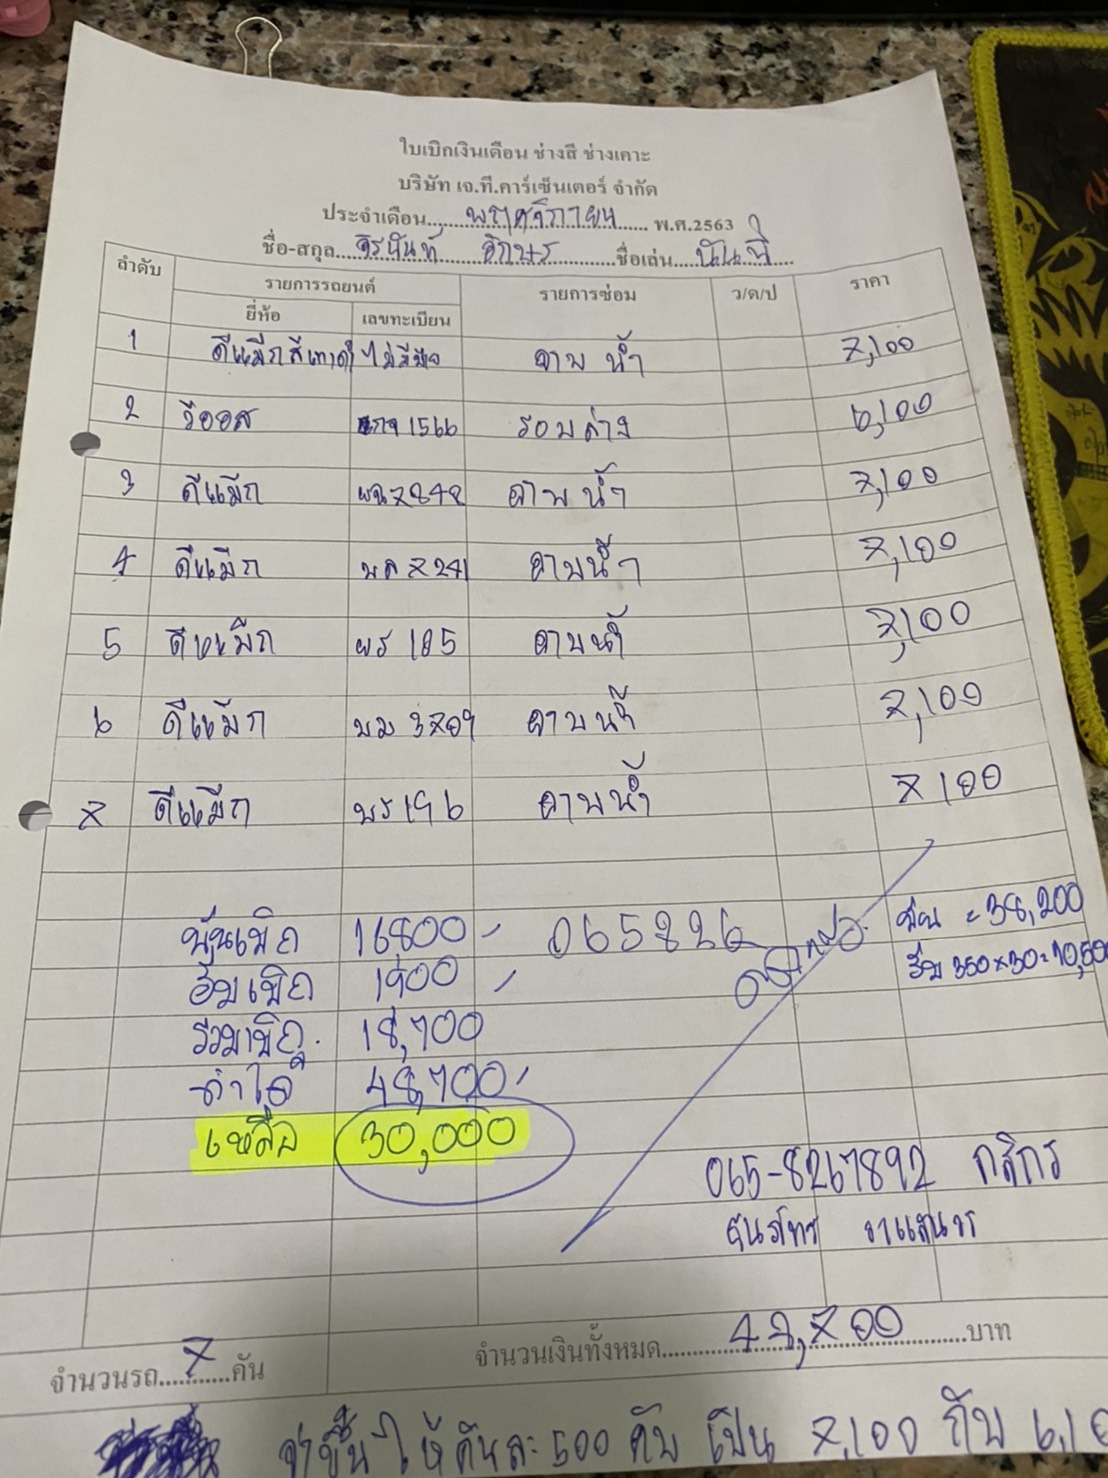 ใบเบิกเงินเดือน ช่างสี ช่างเคาะ
บริษัท เจ.ที.คาร์เซ็นเตอร์ จำกัด
ประจำเดือน พฤศจิกายน พ.ศ.2563
ชื่อ-สกุล จิรนันท์ อักษร ชื่อเล่น
ลำดับ รายการรถยนต์ รายการซ่อม ว/ด/ป ราคา
ยี่ห้อ เลขทะเบียน
1 ดีแม็กสีเทาดำ ไม่มี คาบน้ำ 7,100
2 วีออส 1566 รอบล่าง 6,100
3 ดีแม็ก 7848 คาบน้ำ 7,100
4 ดีแม็ก 7241 คาบน้ำ 7,100
5 ดีแม็ก ผร 185 คาบน้ำ 7,100
6 ดีแม็ก บม 3709 คาบน้ำ 7,100
7 ดีแม็ก บร 196 คาบน้ำ 7100
นันเบิก 16800 065826 = 38,200
อัมเบิก 1900 350x30=10,500
รวมเบิก 18,700
ทำได้ 48,700
เหลือ 30,000
065-8267892 กสิกร
จำนวนรถ 7 คัน จำนวนเงินทั้งหมด 48,700 บาท
จ่าขึ้นให้คันละ 500 คับ เป็น 7,100 กับ 6,10